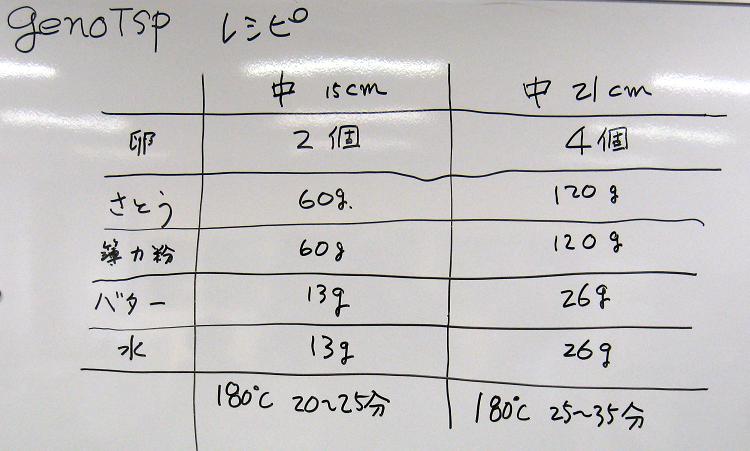 genoTsp レシピ
中 15cm 中 21cm
卵 2個 4個
さとう 60g. 120g
薄力粉 60g 120g
バター 13g 26g
水 13g 26g
180℃ 20~25分 180℃ 25~35分